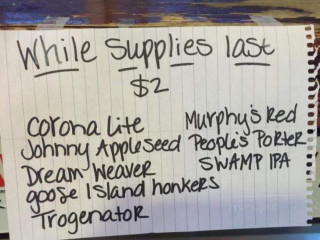 While Supplies last
$2
Corona Lite
Johnny Appleseed
Dream Weaver
goose Island honkers
Trogenator
Murphy's Red
People's Porter
SWAMP IPA